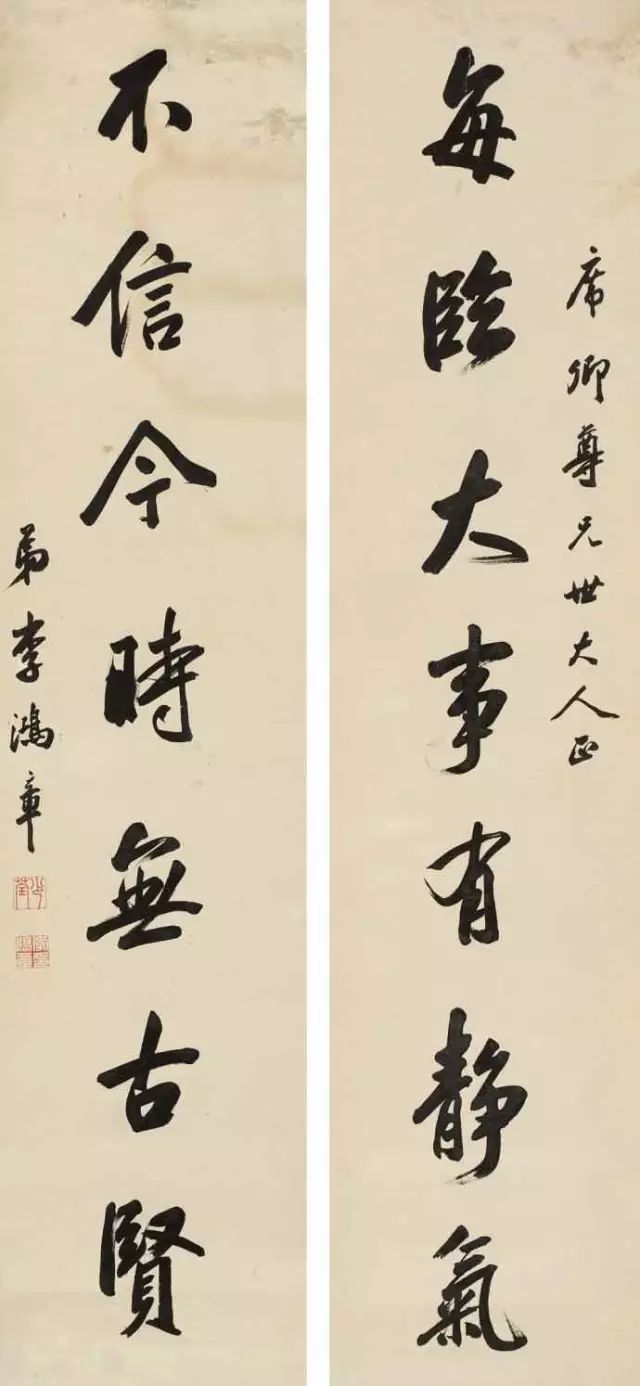 席卿尊兄世大人正
每臨大事有静氣
不信今時無古賢
弟李鴻章